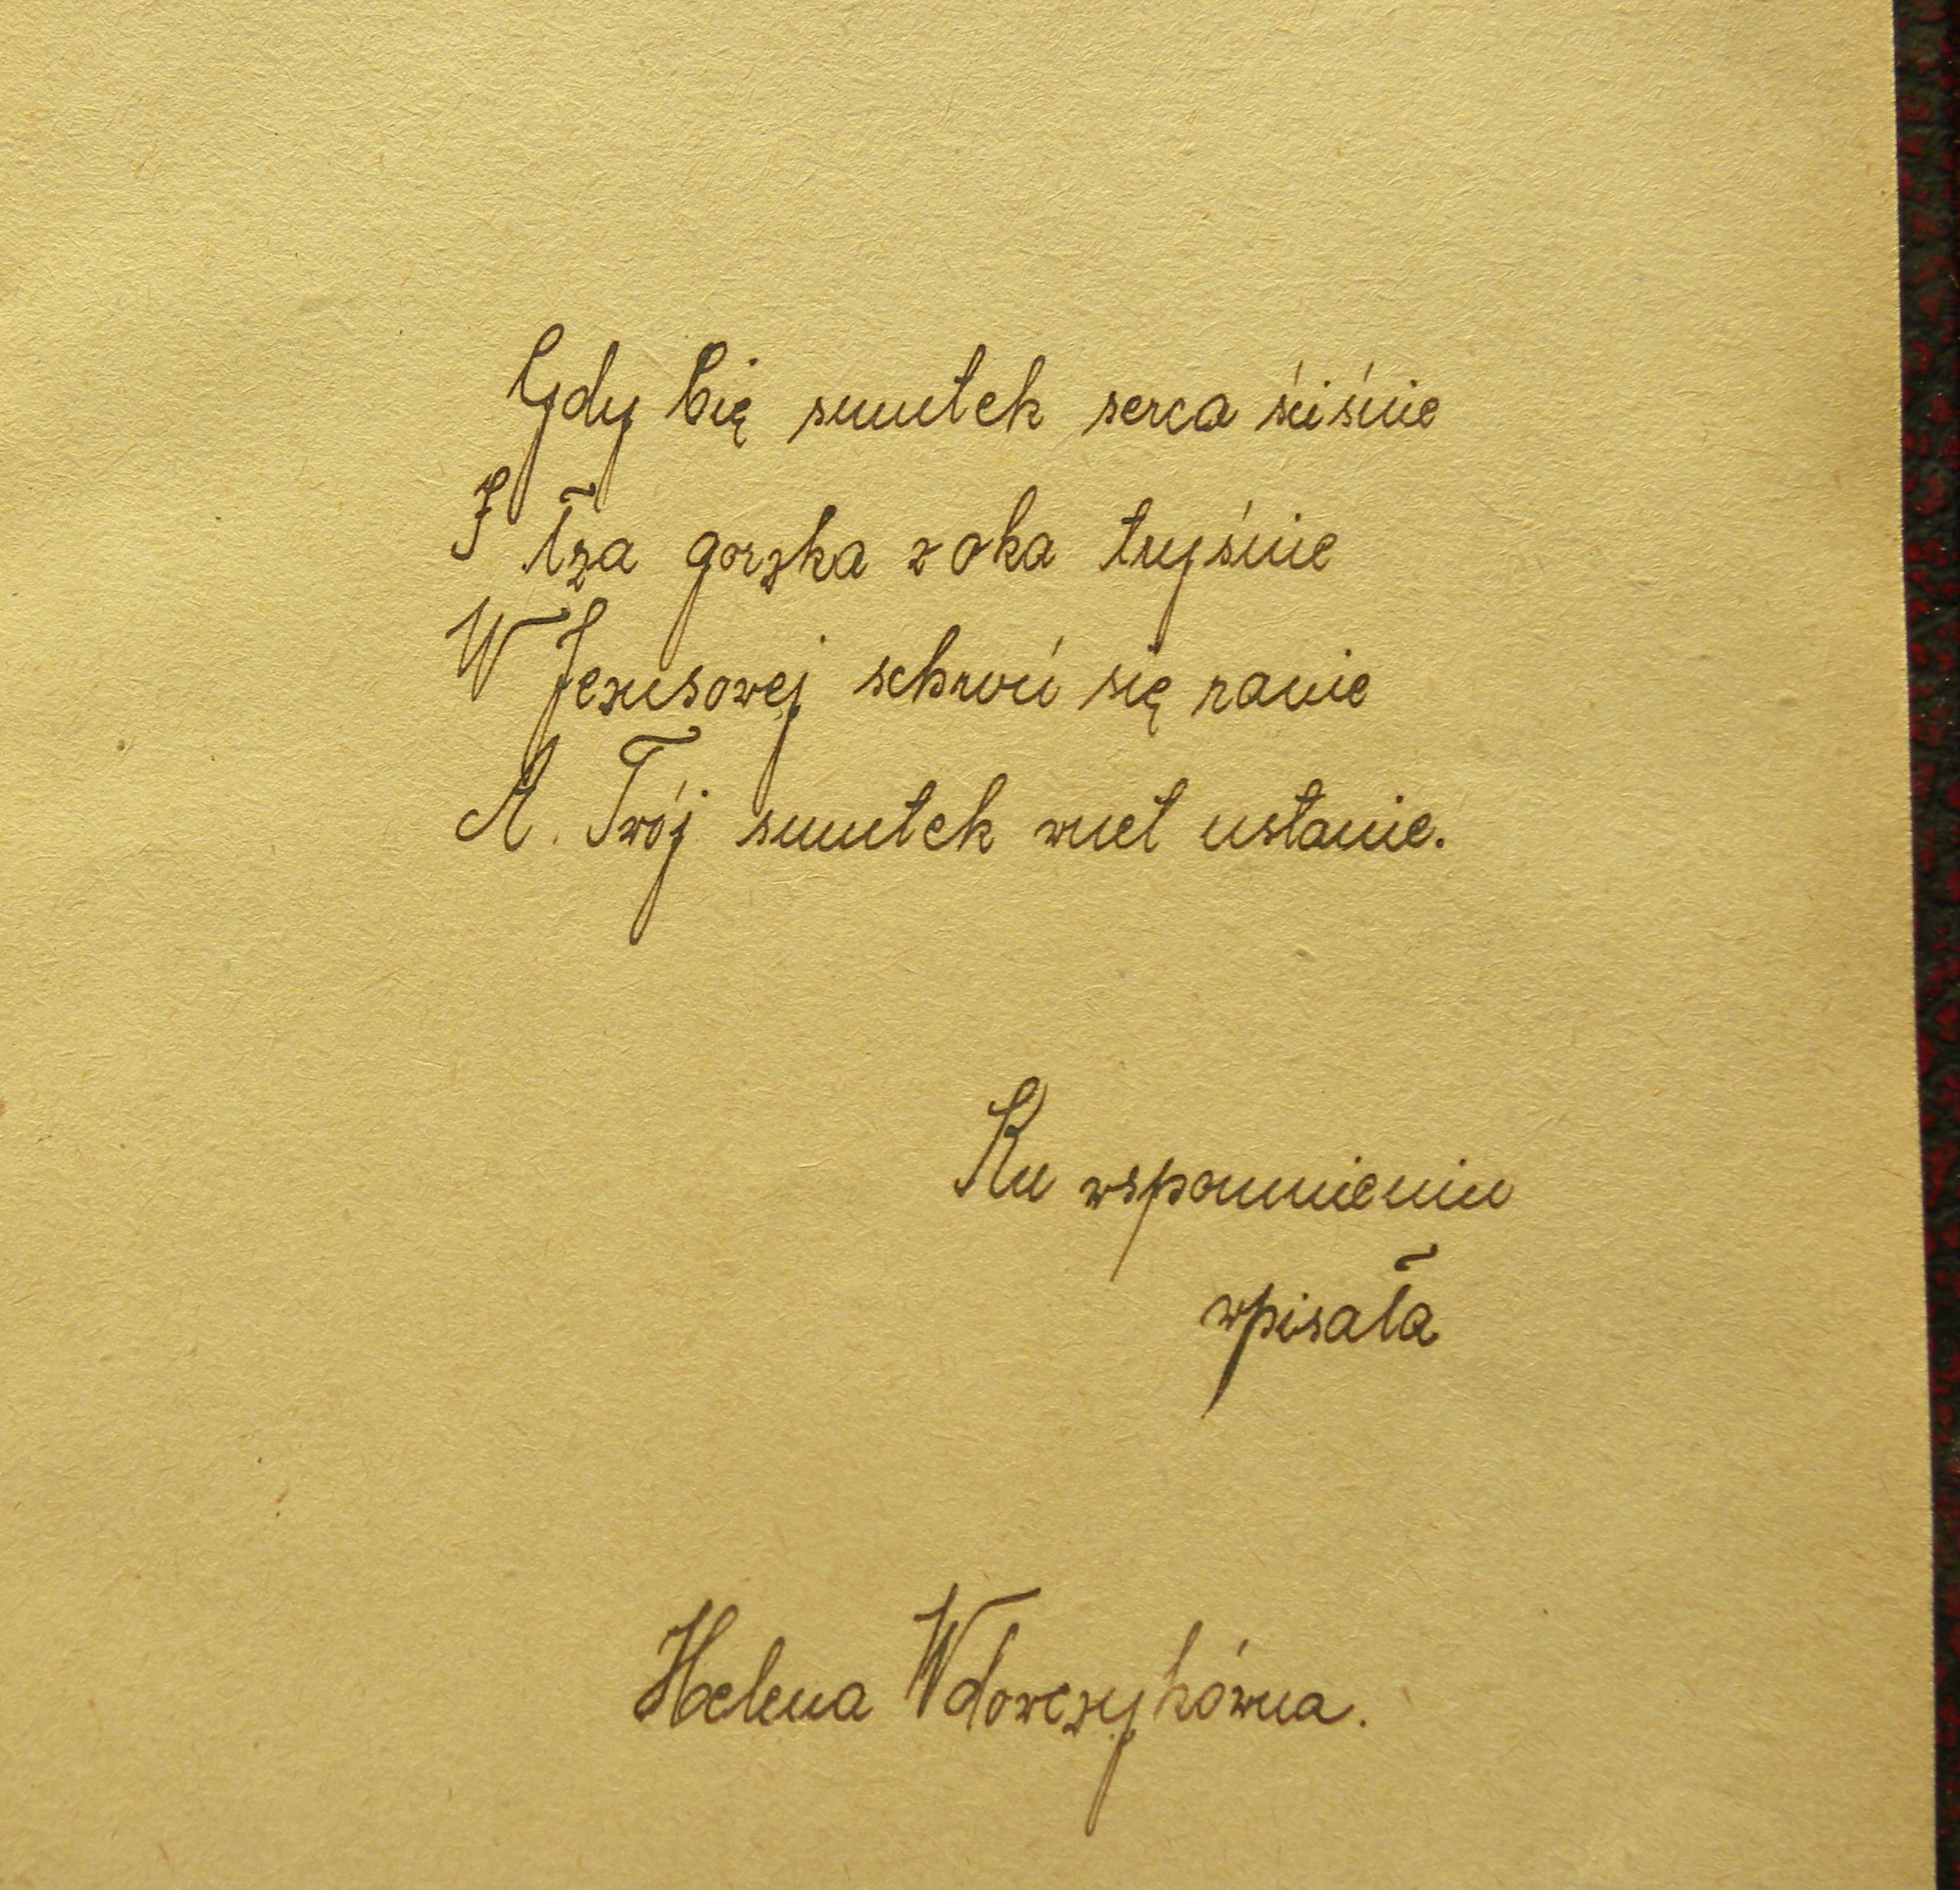 Gdy Cię smutek serca ściśnie
I łza gorzka z oka tryśnie
W Jezusowej schroń się ranie
A Twój smutek wnet ustanie.
Ku wspomnieniu
wpisała
Helena Wdowczykówna.